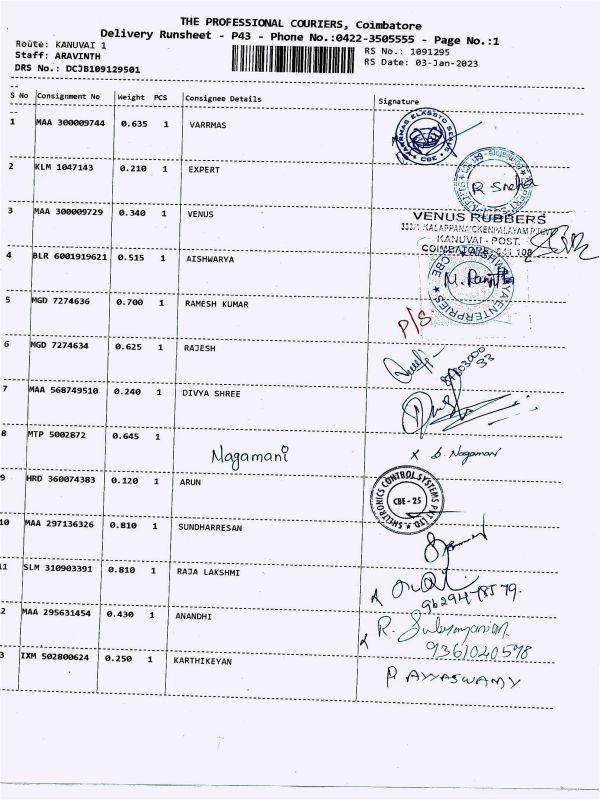 THE PROFESSIONAL COURIERS, Coimbatore
Delivery Runsheet - P43 - Phone No.:0422-3505555 - Page No.:1
Route: KANUVAI 1
Staff: ARAVINTH
DRS No.: DCJB109129501
RS No.: 1091295
RS Date: 03-Jan-2023
S No Consignment No Weight PCS Consignee Details Signature
1 MAA 300009744 0.635 1 VARRMAS
CBE
2 KLM 1047143 0.210 1 EXPERT
R Sneha
3 MAA 300009729 0.340 1 VENUS
VENUS RUBBERS
KANUVAI - POST.
4 BLR 6001919621 0.515 1 AISHWARYA
5 MGD 7274636 0.700 1 RAMESH KUMAR
P/S
6 MGD 7274634 0.625 1 RAJESH
7 MAA 568749510 0.240 1 DIVYA SHREE
8 MTP 5002872 0.645 1 Nagamani
x b. Nagamani
9 HRD 360074383 0.120 1 ARUN
SHELTRONICS CONTROL SYSTEMS PVT LTD
CBE - 25
10 MAA 297136326 0.810 1 SUNDHARRESAN
11 SLM 310903391 0.810 1 RAJA LAKSHMI
2 MAA 295631454 0.430 1 ANANDHI
9361040578
3 IXM 502800624 0.250 1 KARTHIKEYAN
P AYYASWAMY